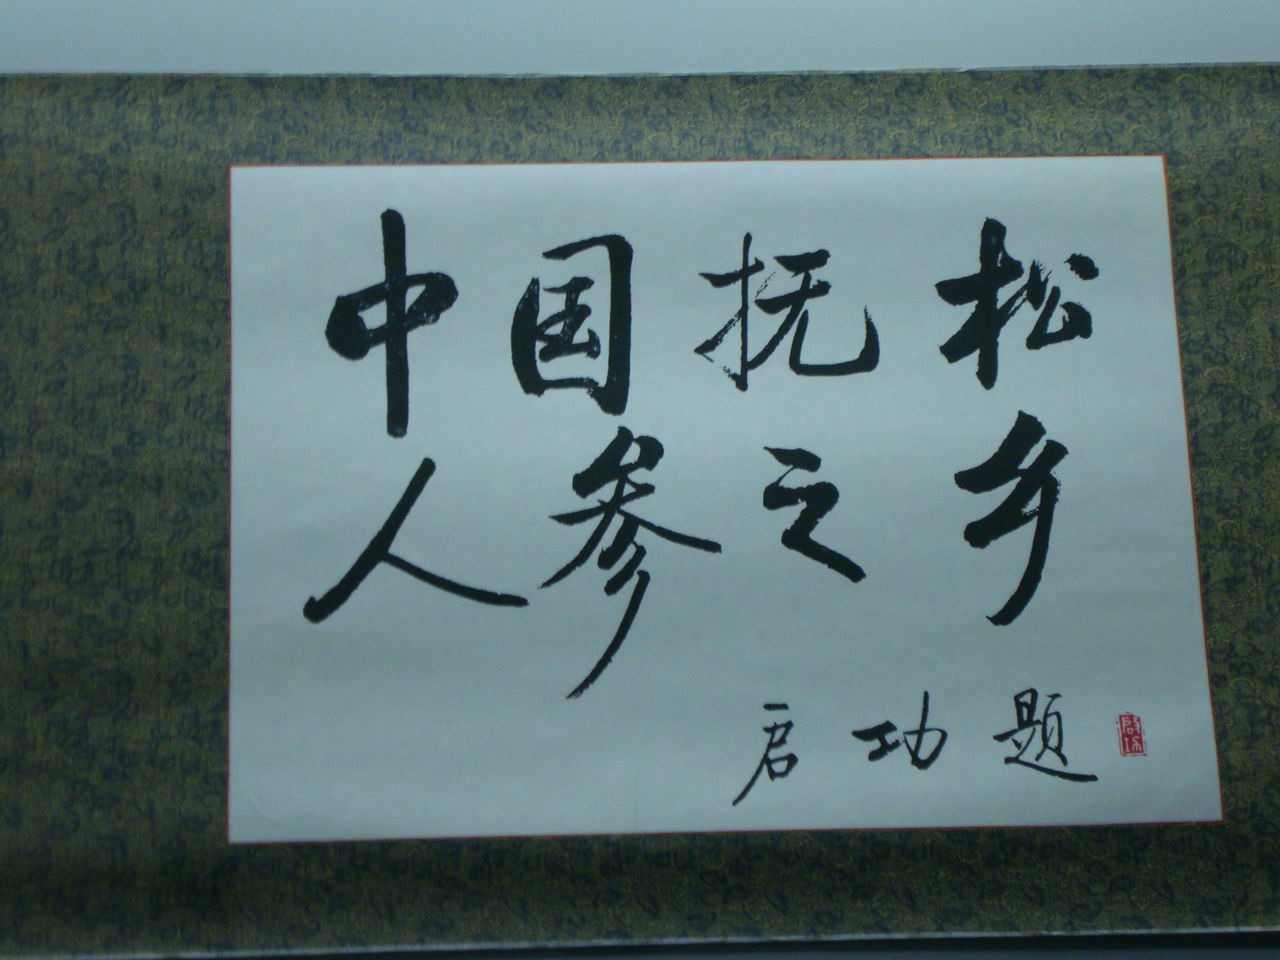 中国抚松
人参之乡
启功题
启功